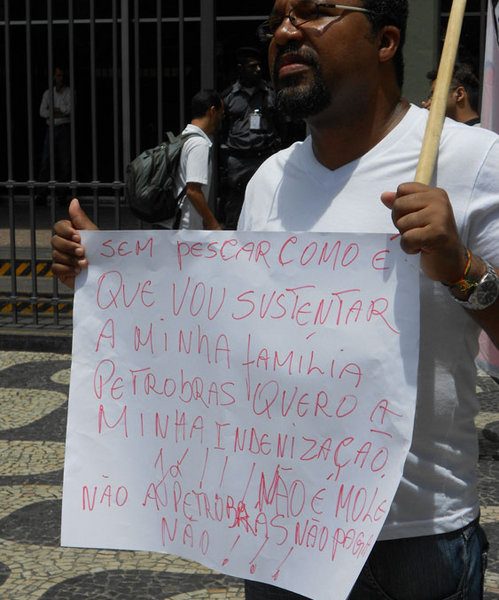 SEM PESCAR COMO E
QUE VOU SUSTENTAR
A MINHA FAMÍLIA
PETROBRAS QUERO A
MINHA INDENIZAÇÃO
JÁ!!! NÃO É MOLE
NÃO A PETROBRAS NÃO PAGA
NÃO!!!